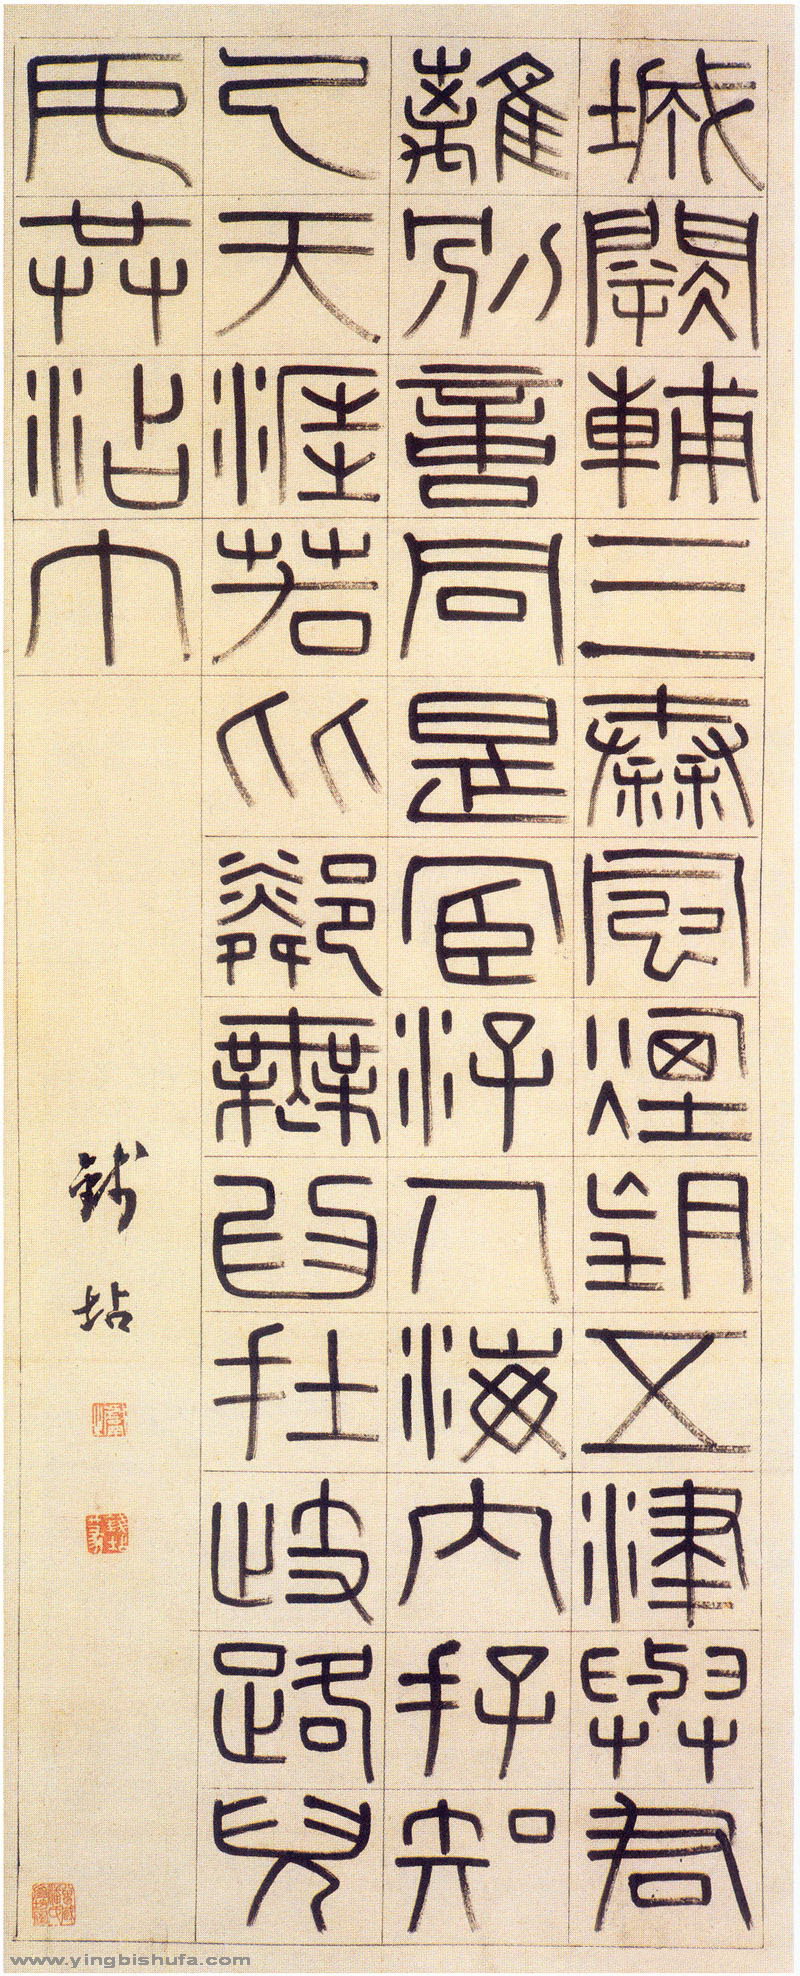 城闕輔三秦風煙望五津與君
離別意同是宦游人海內存知
己天涯若比鄰無為在歧路兒
女共沾巾
錢坫
www.yingbishufa.com